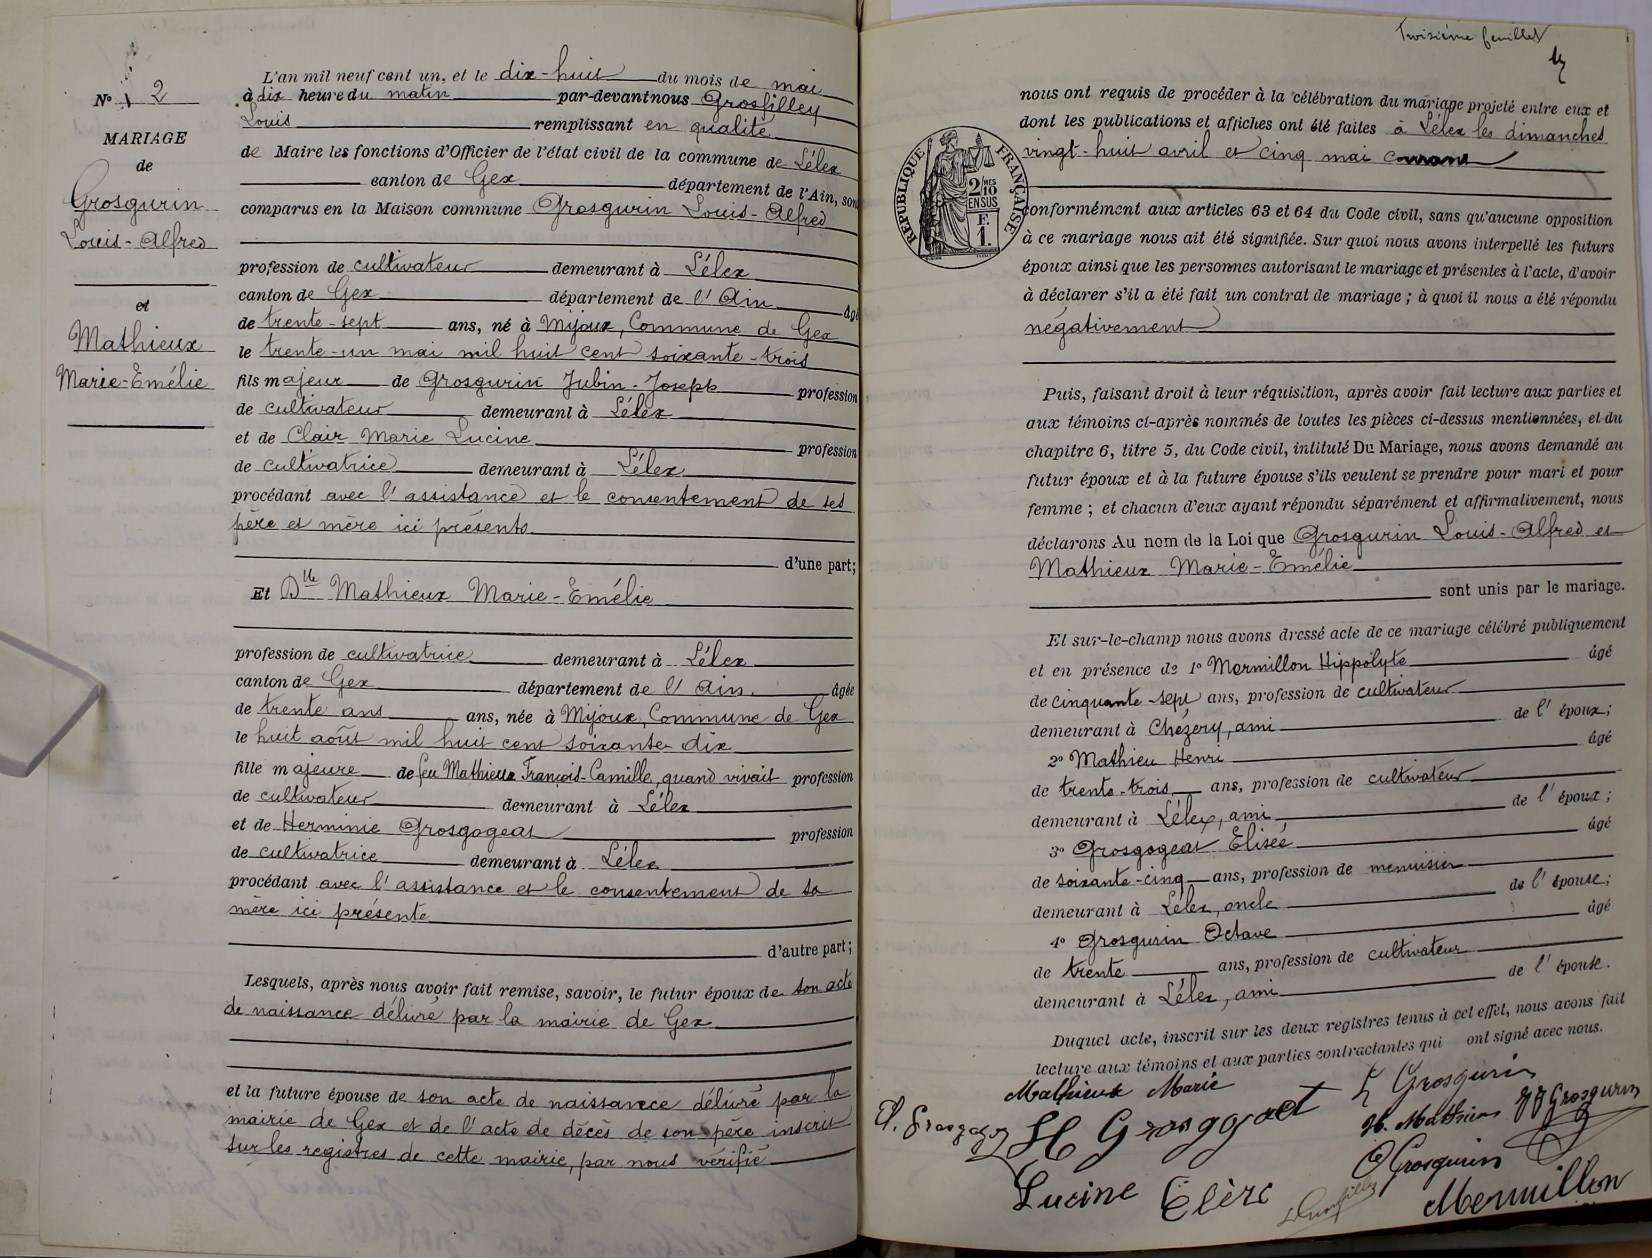 N° 2
MARIAGE
de
Grosgurin
Louis-Alfred
et
Mathieux
Marie-Emélie
L'an mil neuf cent un, et le dix-huit du mois de mai
à dix heure du matin par-devant nous Grosfilley
Louis remplissant en qualité
de Maire les fonctions d'Officier de l'état civil de la commune de Lélex
canton de Gex département de l'Ain, son
comparus en la Maison commune Grosgurin Louis-Alfred
profession de cultivateur demeurant à Lélex
canton de Gex département de l'Ain âgé
de trente-sept ans, né à Mijoux, Commune de Gex
le trente-un mai mil huit cent soixante-trois
fils majeur de Grosgurin Jubin-Joseph profession
de cultivateur demeurant à Lélex
et de Clair Marie Lucine profession
de cultivatrice demeurant à Lélex
procédant avec l'assistance et le consentement de ses
père et mère ici présents
d'une part;
Et Dlle Mathieux Marie-Emélie
profession de cultivatrice demeurant à Lélex
canton de Gex département de l'Ain. âgée
de trente ans ans, née à Mijoux, Commune de Gex
le huit août mil huit cent soixante-dix
fille majeure de feu Mathieux François-Camille, quand vivait profession
de cultivateur demeurant à Lélex
et de Herminie Grosgogeat profession
de cultivatrice demeurant à Lélex
procédant avec l'assistance et le consentement de sa
mère ici présente
d'autre part;
Lesquels, après nous avoir fait remise, savoir, le futur époux de son acte
de naissance délivré par la mairie de Gex
et la future épouse de son acte de naissance délivré par la
mairie de Gex et de l'acte de décès de son père inscrit
sur les registres de cette mairie, par nous vérifié
Troisième feuillet
nous ont requis de procéder à la célébration du mariage projeté entre eux et
dont les publications et affiches ont été faites à Lélex les dimanches
vingt-huit avril et cinq mai courant
RÉPUBLIQUE FRANÇAISE
2/10 MES
EN SUS
F.
1.
conformément aux articles 63 et 64 du Code civil, sans qu'aucune opposition
à ce mariage nous ait été signifiée. Sur quoi nous avons interpellé les futurs
époux ainsi que les personnes autorisant le mariage et présentes à l'acte, d'avoir
à déclarer s'il a été fait un contrat de mariage; à quoi il nous a été répondu
négativement
Puis, faisant droit à leur réquisition, après avoir fait lecture aux parties et
aux témoins ci-après nommés de toutes les pièces ci-dessus mentionnées, et du
chapitre 6, titre 5, du Code civil, intitulé Du Mariage, nous avons demandé au
futur époux et à la future épouse s'ils veulent se prendre pour mari et pour
femme; et chacun d'eux ayant répondu séparément et affirmativement, nous
déclarons Au nom de la Loi que Grosgurin Louis-Alfred et
Mathieux Marie-Emélie
sont unis par le mariage.
Et sur-le-champ nous avons dressé acte de ce mariage célébré publiquement
et en présence de 1° Mermillon Hippolyte âgé
de cinquante-sept ans, profession de cultivateur
demeurant à Chézery, ami de l'époux;
2° Mathieu Henri âgé
de trente-trois ans, profession de cultivateur
demeurant à Lélex, ami de l'époux;
3° Grosgogeat Elisée âgé
de soixante-cinq ans, profession de menuisier
demeurant à Lélex, oncle de l'épouse;
4° Grosgurin Octave âgé
de trente ans, profession de cultivateur
demeurant à Lélex, ami de l'épouse.
Duquel acte, inscrit sur les deux registres tenus à cet effet, nous avons fait
lecture aux témoins et aux parties contractantes qui ont signé avec nous.
Mathieux Marie
L Grosgurin
H Grosgogeat
H. Mathieu
JJ Grosgurin
O Grosgurin
Lucine Clerc
Mermillon